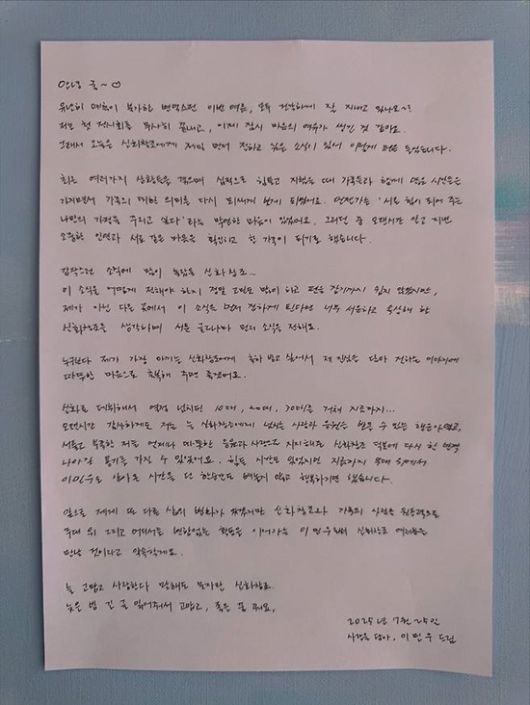 안녕 귤~♡
유난히 예측이 불가한 변덕스런 이번 여름, 모두 건강하게 잘 지내고 있나요~?
저는 첫 전시회를 무사히 끝내고, 이제 잠시 마음의 여유가 생긴 것 같아요.
그래서 오늘은 신화창조에게 제일 먼저 전하고 싶은 소식이 있어 이렇게 펜을 들었습니다.
최근 여러가지 상황들을 겪으며 심적으로 힘들고 지쳤을 때 가족들과 함께 많은 시간들을
가지면서 가족의 대한 의미를 다시 되새기게 되었어요. 언젠가는 '서로 힘이 되어 주는
나만의 가정을 꾸리고 싶다'라는 막연한 마음이 있었어요. 그러던 중 오랜시간 알고 지낸
소중한 인연과 서로 같은 마음을 확인하고 한 가족이 되기로 했습니다.
갑작스런 소식에 많이 놀랐을 신화창조~
이 소식을 어떻게 전해야 하지 정말 고민도 많이 하고 펜을 잡기까지 쉽지 않았지만,
제가 아닌 다른 곳에서 이 소식을 먼저 접하게 된다면 너무 서운하고 속상해 할
신화창조를 생각하며 서툰 글이나마 먼저 소식을 전해요.
누구보다 제가 가장 아끼는 신화창조에게 축하 받고 싶어서 제 진심을 담아 전하는 이야기에
따뜻한 마음으로 축복해 주면 좋겠어요.
신화로 데뷔해서 열정 넘치던 10대, 20대, 30대를 거쳐 지금까지...
오랜시간 감사하게도 저는 늘 신화창조에게 넘치는 사랑과 응원을 받을 수 있는 행운아였고,
서툴고 부족한 저를 언제나 따뜻한 응원과 사랑으로 지지해준 신화창조 덕분에 다시 한 번 더
나아갈 용기를 가질 수 있었어요. 힘든 시간도 있었지만 지금까지 무대 위에서
이민우로 살아온 시간을 단 한순간도 빼놓지 않고 행복하기만 했습니다.
앞으로 제게 또 다른 삶의 변화가 생기지만 신화창조와 가족의 일상을 원동력으로
무대 위 그리고 어디서든 변함없는 활동을 이어가는 이민우로써 신화창조 여러분을
만날 것이라고 약속할게요.
늘 고맙고 사랑한다 말해도 모자란 신화창조.
늦은 밤 긴 글 읽어줘서 고맙고, 좋은 꿈 꿔요.
2025년 7월 25일
사랑을 담아, 이민우 드림